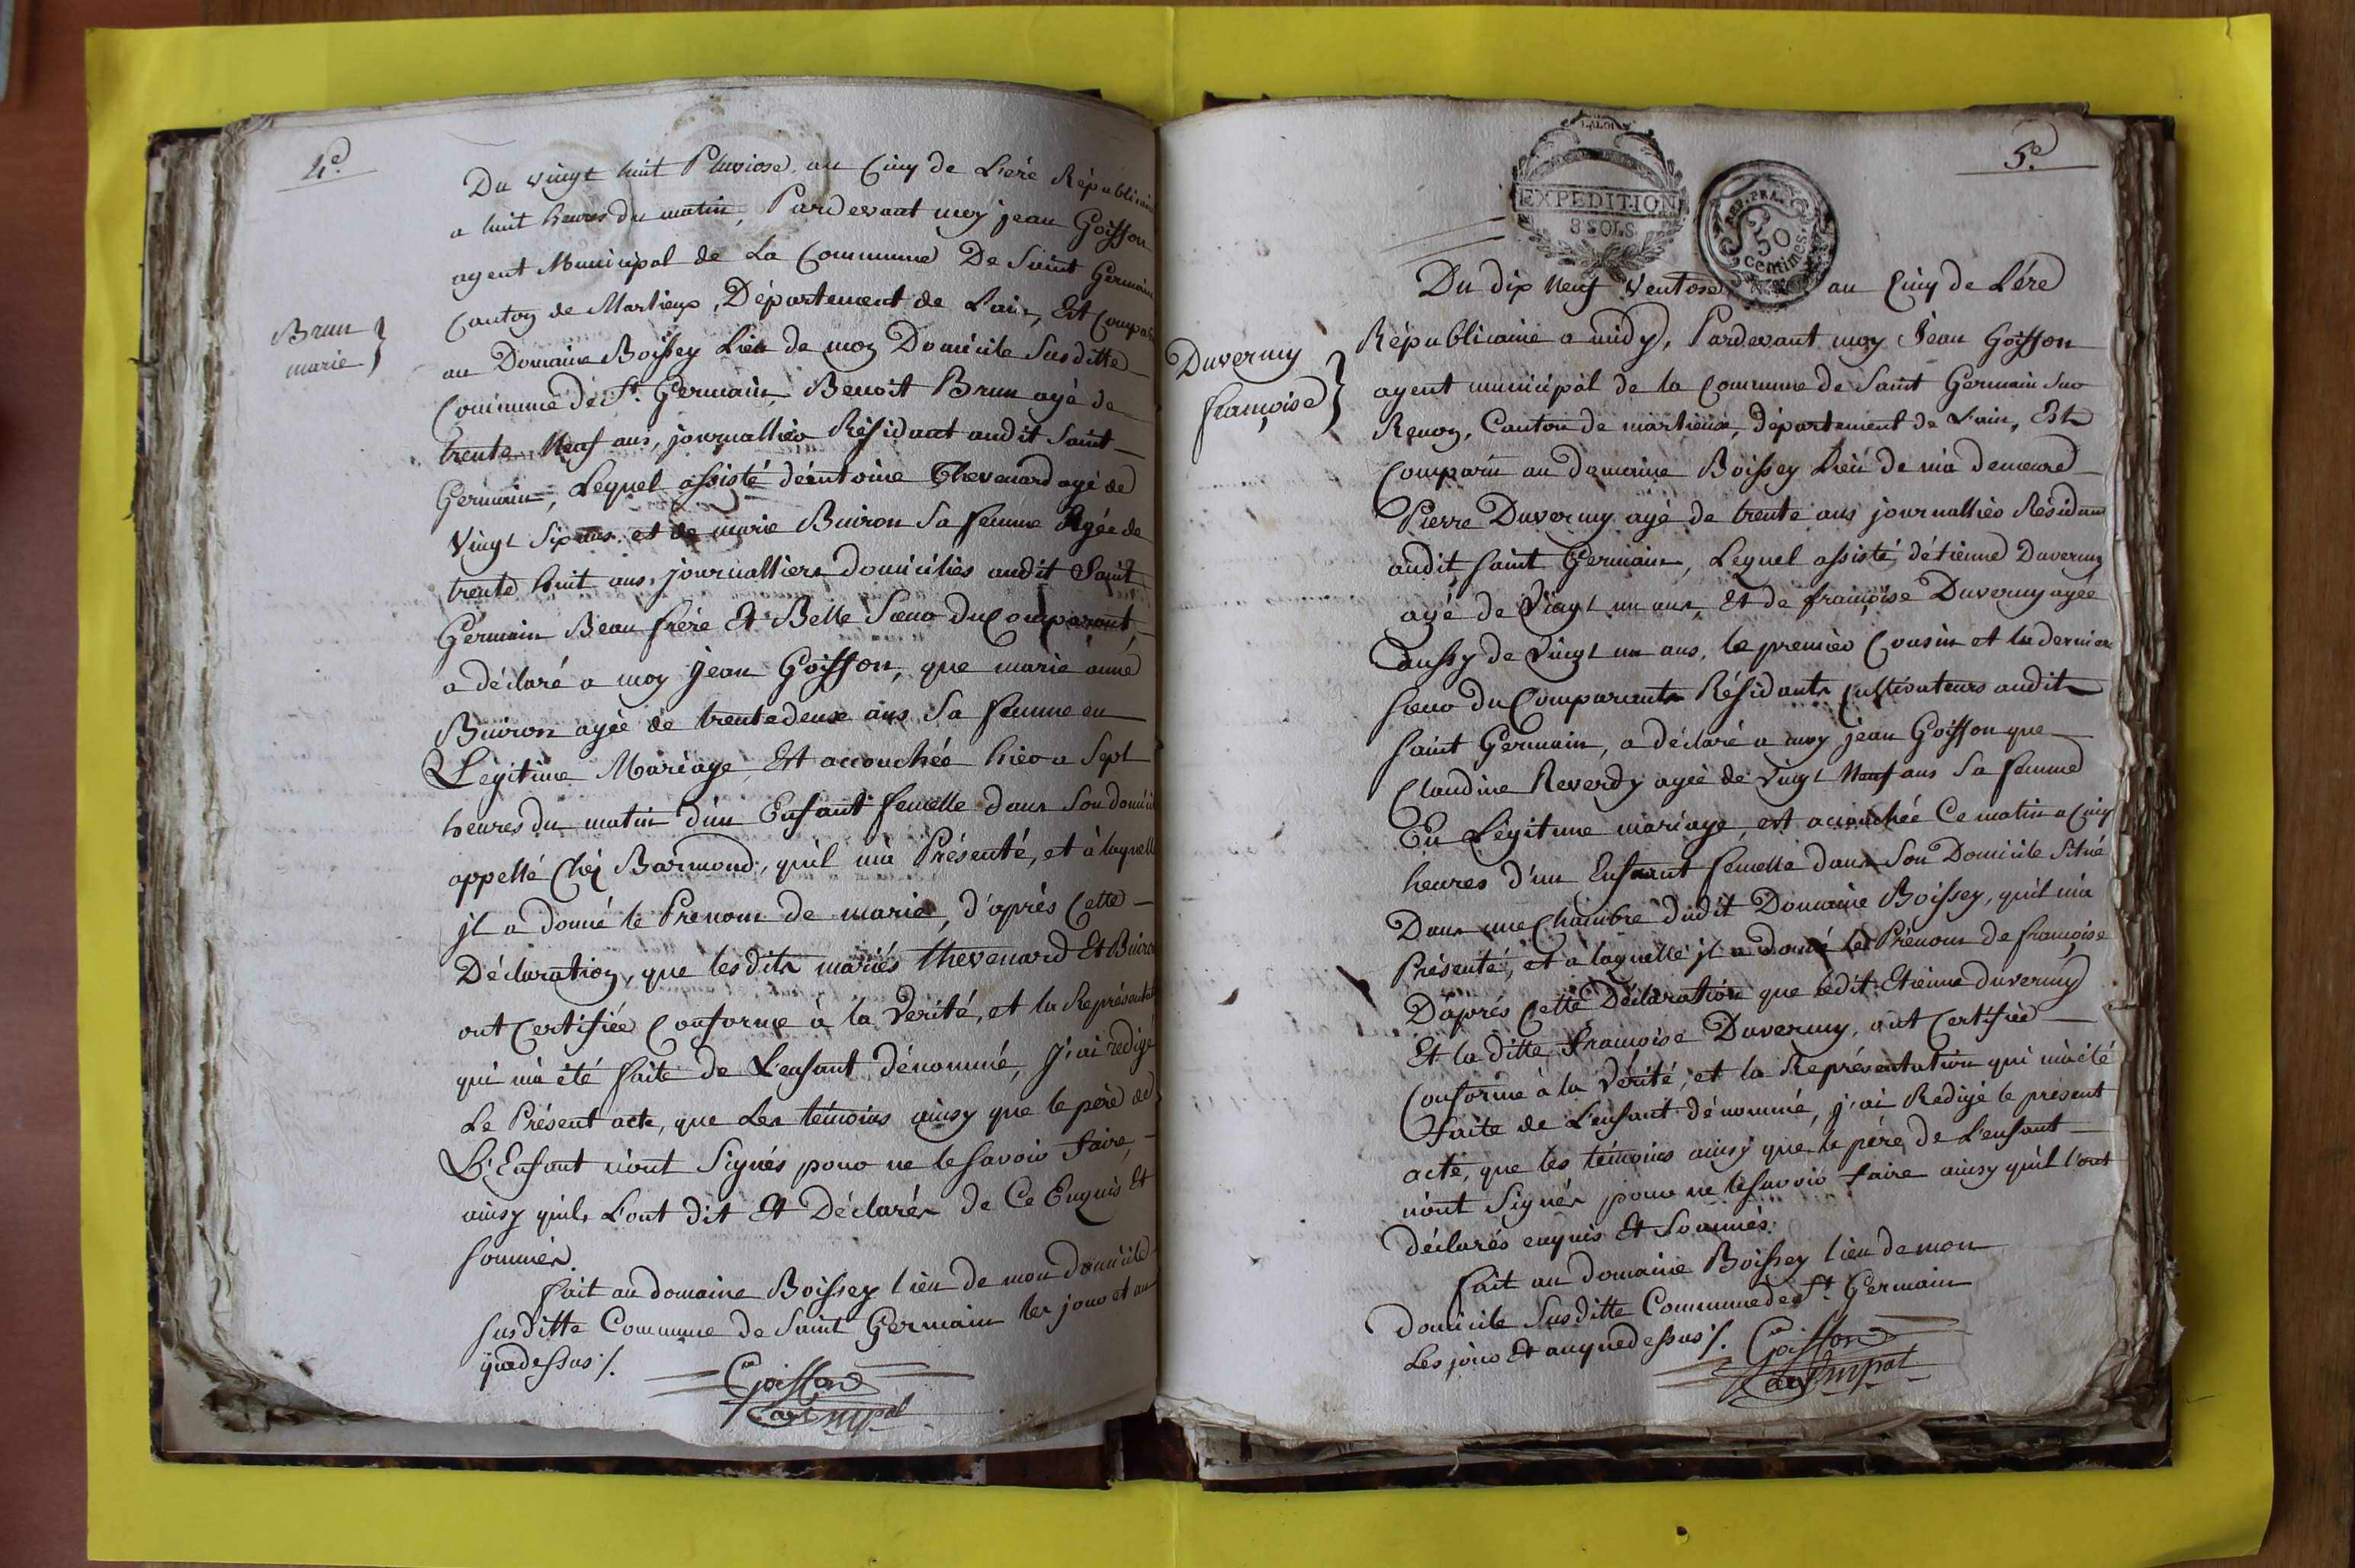 4e.
Du vingt huit Pluviose an Cinq de L'ére Républicaine
a huit heures du matin, Pardevant moy jean Goiffon
agent Municipal de La Commune De Saint Germain
Canton de Marlieux, Département de Lain, Est Compar
Brun
marie }
au Domaine Boissey Lieu de mon Domicile Susditte
Commune de St. Germain, Benoit Brun agé de
trente Neuf ans, journallier Résidant audit Saint
Germain, Lequel assisté d'éntoine Thevenard agé de
Vingt Six ans et de marie Buiron Sa femme Agée de
trente huit ans, journalliers domiciliés audit Saint
Germain Beau frére Et Belle Soeur du Comparant,
a déclaré a moy jean Goiffon, que marie anne
Buiron agée de trente deux ans Sa femme en
Légitime Mariage, Est accouchée hier a Sept
heures du matin d'un Enfant femelle dans Son domicil
appellé Chéz Barmond, quil m'a Présenté, et à laquell
jl a donné le Prenom de marie, d'aprés Cette
Déclaration, que lesdits mariés thevenard Et Buiron
ont Certifiée Conforme à la Verité, et la Représentat
qui m'a été faite de L'enfant dénommé, J'ai redigé
Le Présent acte, que Les témoins ainsy que le pére de
L'Enfant n'ont Signés pour ne le Savoir faire,
ainsy quils L'ont dit Et Déclarés de Ce Enquis Et
Sommés.
fait au domaine Boissey lieu de mon domicile
Susditte Commune de Saint Germain les jour et an
que dessus ./.
Goiffon
agt mpal
LA LOI
EXPEDITION
8 SOLS
REP. FRA.
50
centimes.
5e.
Du dix Neuf Ventose an Cinq de L'ére
Républicaine a midy, Pardevant moy Jean Goiffon
Duvernay
françoise }
agent municipal de la Commune de Saint Germain Sur
Renon, Canton de marlieux, département de Lain, Est
Comparu au domaine Boissey Lieu de ma demeure
Pierre Duverny agé de trente ans journallier Résidant
audit Saint Germain, Lequel assisté d'étienne Duverny
agé de Vingt un ans, Et de françoise Duverny agée
aussy de Vingt un ans, le premier Cousin et la derniere
Soeur du Comparants Résidants Cultivateurs audit
Saint Germain, a déclaré a moy jean Goiffon que
Claudine Reverdy agée de Vingt Neuf ans Sa femme
En Légitime mariage, est accouchée Ce matin a Cinq
heures d'un Enfant femelle dans Son Domicile Situé
Dans une Chambre dudit Domaine Boissey, quil m'a
Présenté, et à laquelle jl a donné Le Prénom de françoise
D'aprés Cette Déclaration que ledit Etienne duverny
Et la ditte françoise Duverny, ont Certifiée
Conforme à la Vérité, et la Représentation qui m'a été
faite de L'enfant dénommé, j'ai Redigé le présent
acte, que les témoins ainsy que le pére de L'enfant
n'ont Signés pour ne le Savoir faire ainsy quil l'ont
déclarés enquis Et Sommés.
fait au domaine Boissey lieu de mon
domicile Susditte Commune de St. Germain
Les jour Et an que dessus ./. Goiffon
agt mpal